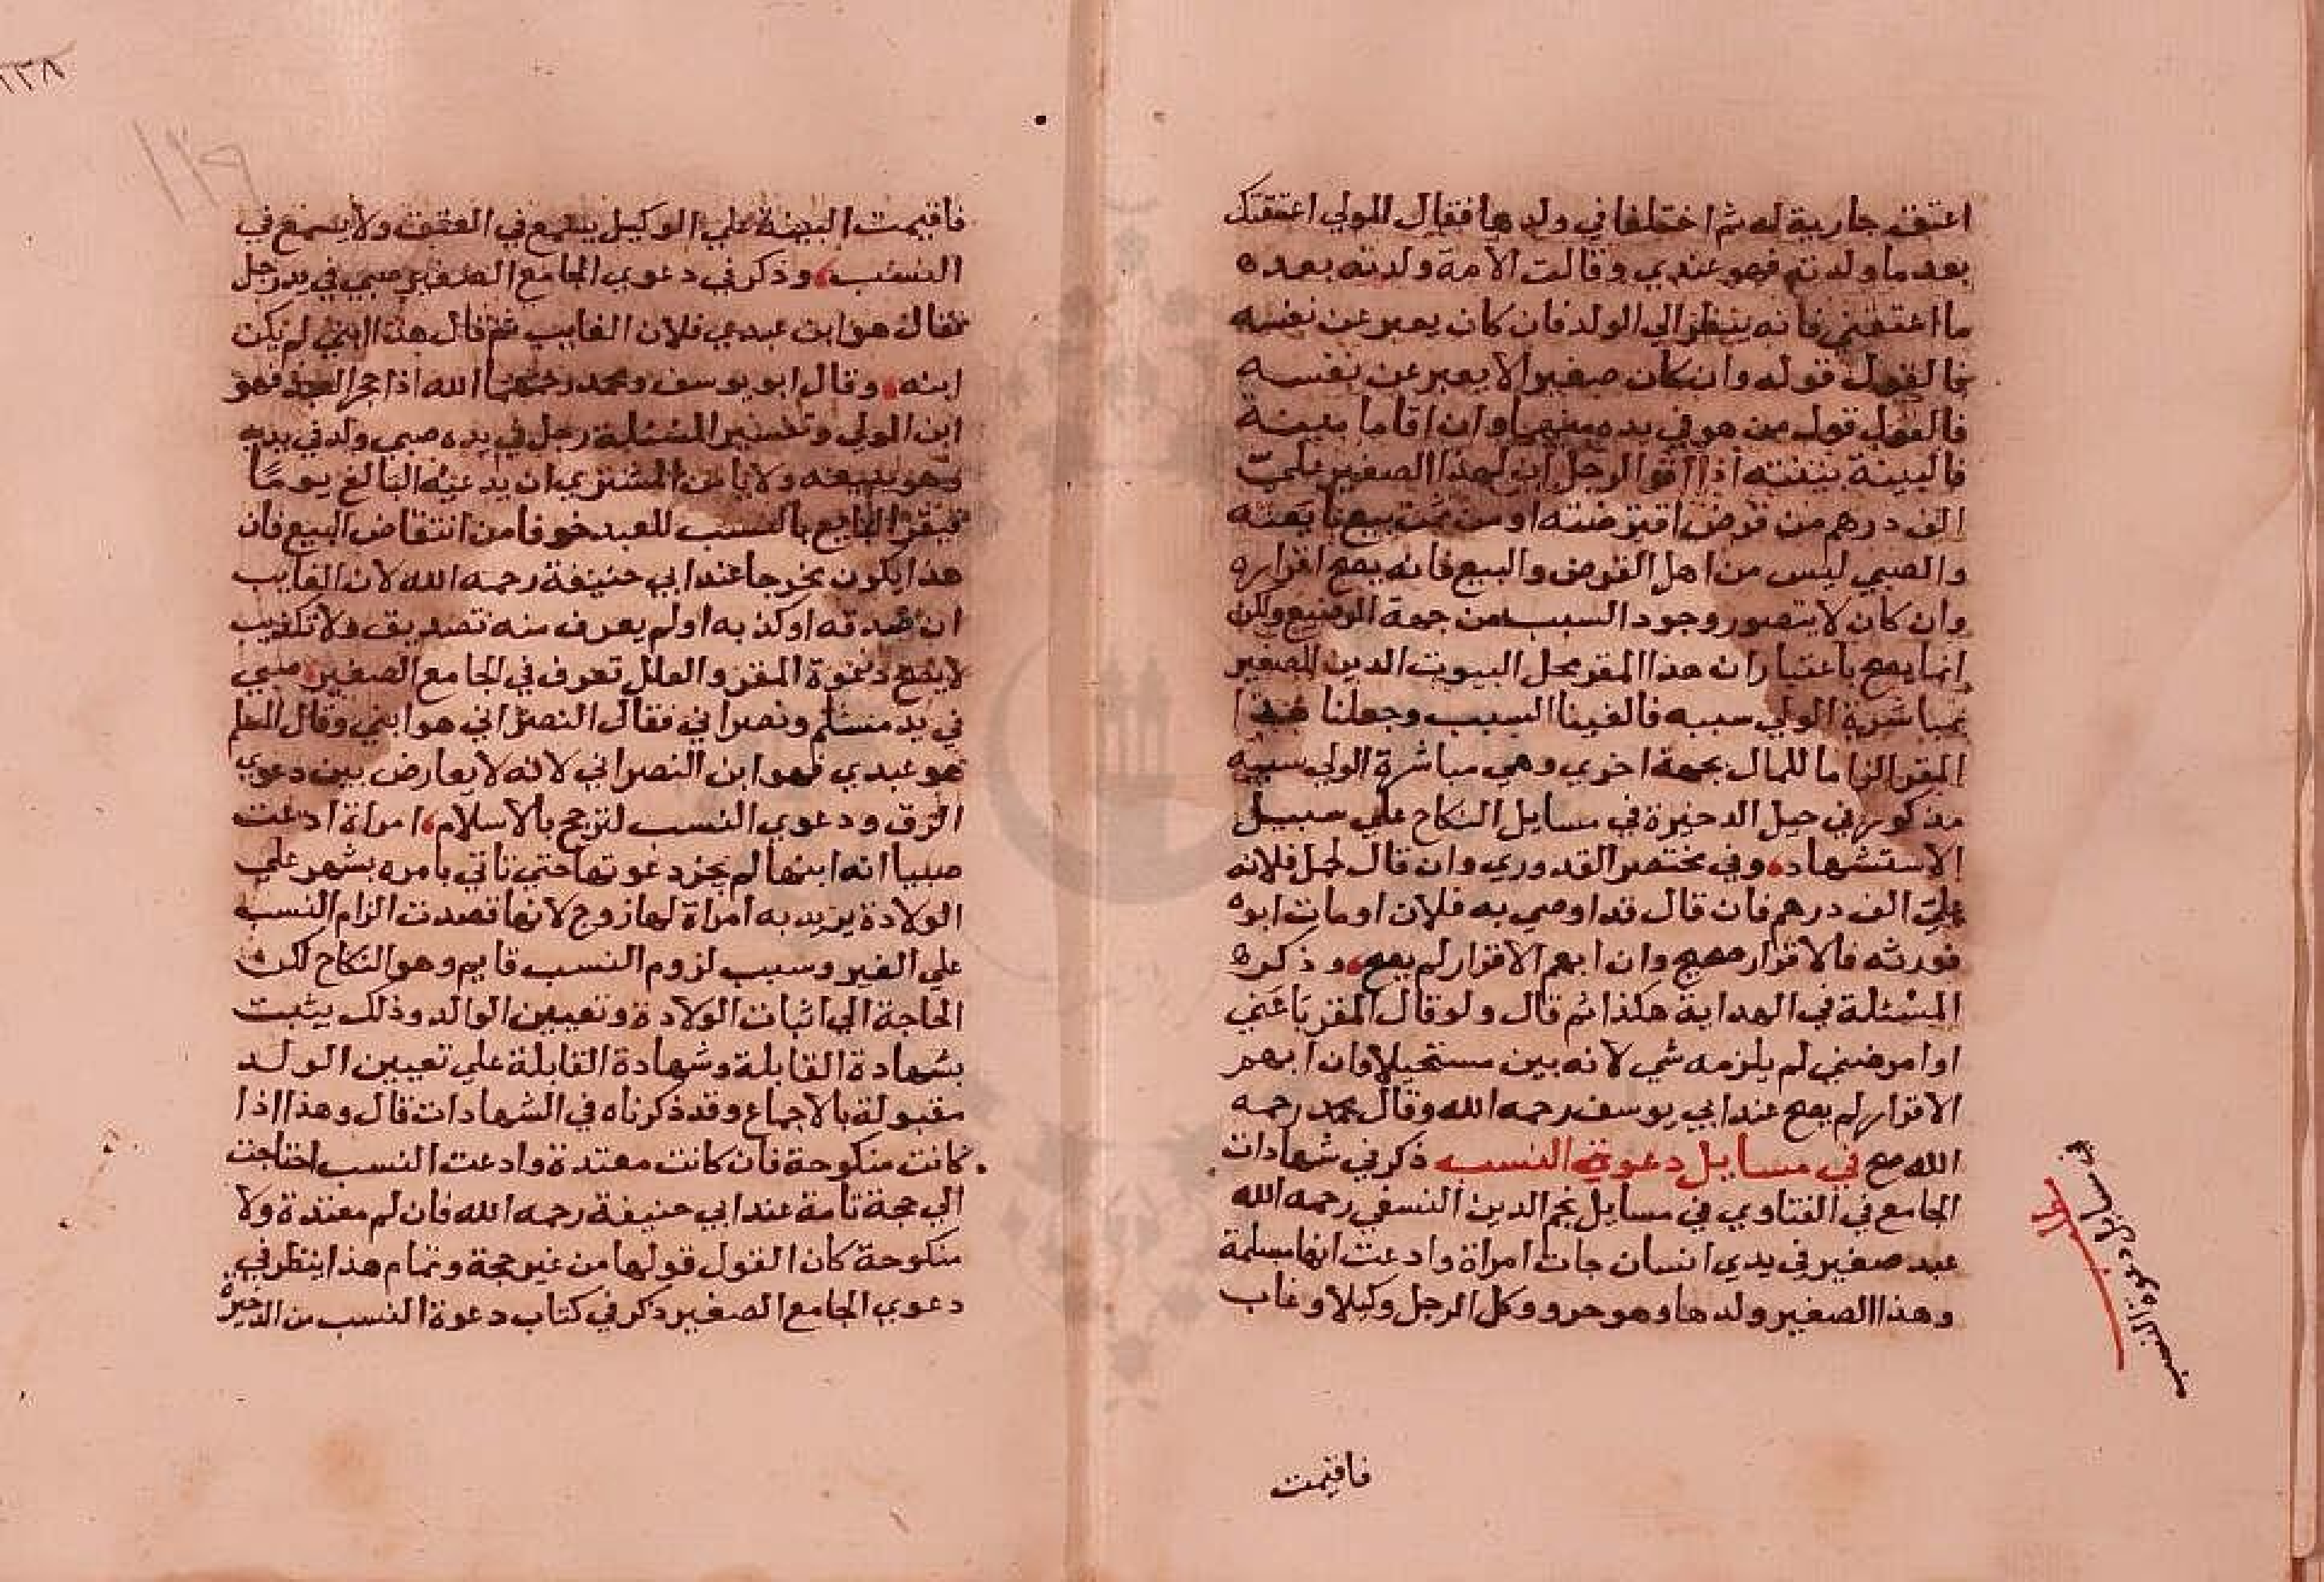 اعتق جارية له ثم اختلفا في ولدها فقال المولي اعتقتك
بعد ما ولدته فهو عبدي وقالت الامة ولدته بعده
ما اعتقتني فانه ينظر الي الولد فان كان يعبر عن نفسه
فالقول قوله وان كان صغيرا لا يعبر عن نفسه
فالقول قول من هو في يده منهما وان اقاما بينة
فالبينة بينته اذا اقر الرجل ان لهذا الصغير علي
الف درهم من قرض اقرضنيه او من ثمن بيع باعنيه
والصبي ليس من اهل القرض والبيع فانه يصح اقراره
وان كان لا يتصور وجود السبب من جهة الرضيع ولكن
انما يصح باعتبار ان هذا المقر محل الثبوت الدين للصغير
بمباشرة الولي سببه فالغينا السبب وجعلنا هذا
المقر الزاما للمال بجهة اخري وهي مباشرة الولي سببه
مذكور في حيل الدخيرة في مسايل النكاح علي سبيل
الاستشهاد وفي مختصر القدوري وان قال لحمل فلانة
علي الف درهم فان قال قد اوصي به فلان او مات ابوه
فورثه فالاقرار صحيح وان ابهم الاقرار لم يصح وذكره
المسئلة في الهداية هكذا ثم قال ولو قال المقر باعني
او اقرضني لم يلزمه شي لانه بين مستحيلا وان ابهم
الاقرار لم يصح عند ابي يوسف رحمه الله وقال محمد رحمه
الله صح في مسايل دعوة النسب ذكر في شهادات
الجامع في الفتاوي في مسايل نجم الدين النسفي رحمه الله
عبد صغير في يدي انسان جات امراة وادعت انها مسلمة
وهذا الصغير ولدها وهو حر ووكل الرجل وكيلا وغاب
فاقيمت
في مسايل دعوة النسب
١٣٨
١١٩
فاقيمت البينة علي الوكيل يسمع في العتق ولا يسمع في
النسب وذكر في دعوي الجامع الصغير صبي في يد رجل
فقال هو ابن عبدي فلان الغايب ثم قال هذا ابني لم يكن
ابنه وقال ابو يوسف ومحمد رحمهما الله اذا جحد العبد فهو
ابن المولي وتفسير المسئلة رجل في يده صبي ولد في يده
وهو يبيعه ولا يامن المشتري ان يدعيه البايع يوما
فيقر البايع بالنسب للعبد خوفا من انتقاض البيع فان
هذا يكون مخرجا عند ابي حنيفة رحمه الله لان الغايب
ان صدقه او كذبه او لم يعرف منه تصديق ولا تكذيب
لا يصح دعوة المقر والعلل تعرف في الجامع الصغير صبي
في يد مسلم ونصراني فقال النصراني هو ابني وقال المسلم
هو عبدي فهو ابن النصراني لانه لا يعارض بين دعوي
الرق ودعوي النسب لترجح بالاسلام امراة ادعت
صبيا انه ابنها لم يجز دعوتها حتي تاتي بامره بشهر علي
الولادة يريد به امراة لها زوج لانها قصدت الزام النسب
علي الغير وسبب لزوم النسب قايم وهو النكاح لكن
الحاجة الي اثبات الولادة وتعيين الوالد وذلك يثبت
بشهادة القابلة وشهادة القابلة علي تعيين الولد
مقبولة بالاجماع وقد ذكرناه في الشهادات قال وهذا اذا
كانت منكوحة فان كانت معتدة وادعت النسب احتاجت
الي حجة تامة عند ابي حنيفة رحمه الله فان لم معتدة ولا
منكوحة كان القول قولها من غير حجة وتمام هذا ينظر في
دعوي الجامع الصغير ذكر في كتاب دعوة النسب من الدخيرة